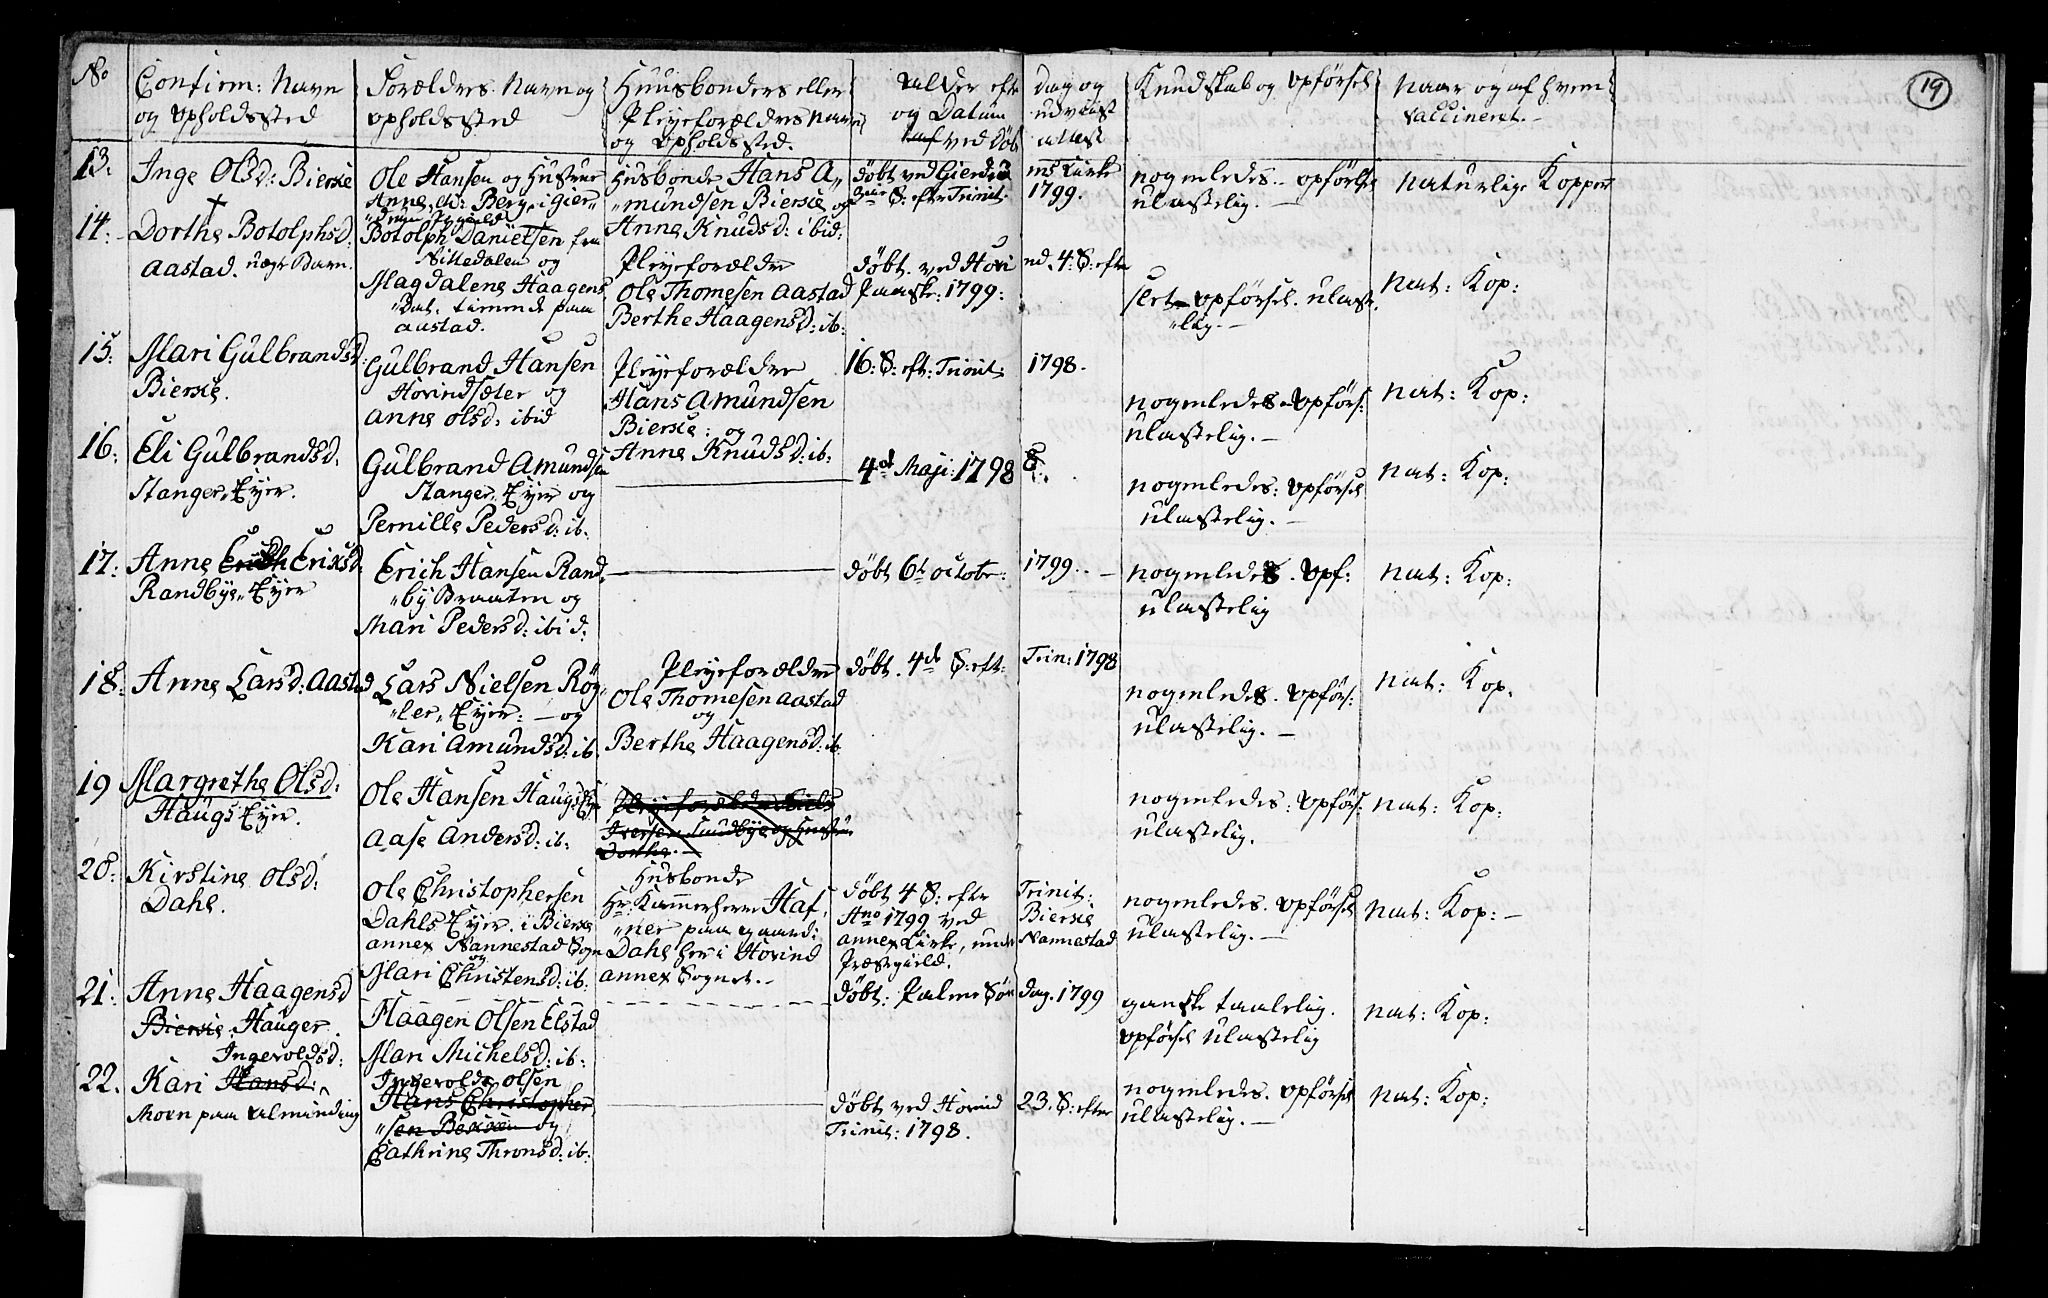 19
No
Confirm: Navn
og Opholdssted
Forældres Navn og
Opholdssted
Huusbonders eller
Pleyeforældres Navn
og Opholdssted.
Alder efter
og Datum
ved Døb
Dag og
udviist
attest
Kundskab og Opførsel
Naar og af hvem
vaccineret.
13:
Inge Olsd: Bierke
Ole Hansen og Hustrue
Anne
Husbonde Hans A„
„mundsen Bierke og
Anne Knudsd: ibid:
døbt ved Gierdru
S: eftr Trinit:
ms Kirke
1799.
nogenledes. opførsel
ulastelig. —
naturlige Kopper
14.
Dorthe Botolphsd:
Aastad. uægte Barn.
Botolph Danielsen fra
Nittedalen og
Magdalene Haagens
„Dat. tienende paa
Aastad.
Pleyeforældre
Ole Thomesen Aastad
Berthe Haagensd: ib:
døbt. ved Hovi
nd. 4: S: eftr
Paaske: 1799:
slet opførsel. ulast„
„lig. —
nat: Kop:
15:
Mari Gulbrandsd:
Bierke.
Gulbrand Hansen
Hovindsæter og
Anne Olsd: ibid
Pleyeforældre
Hans Amundsen
Bierke: og
Anne Knudsd: ib:
16: S: eft: Trinit:
1798.
nogenledes opførs:
ulastelig. —
nat: Kop:
16:
Eli Gulbrandsd:
Stanger„Eyer.
Gulbrand Amundsen
Stanger„Eyer og
Pernille Pedersd: ib.
4d Maji: 1798
8.
nogenledes: opførsel
ulastelig. —
nat: Kop:
17:
Anne Erich Erixsd:
Randbye„Eyer
Erich Hansen Rand„
„by Braaten og
Mari Pedersd: ibid:
døbt 6t octobr:
1799. —
nogenledes. opf:
ulastelig
nat: Kop:
18:
Anne Larsd: Aastad
Lars Nielsen Røg„
„ler„Eyer: — og
Kari Amundsd: ib.
Pleyeforældre
Ole Thomesen Aastad
og
Berthe Haagensd: ib
døbt. 4de S: eft:
Trin: 1798
nogenledes. opførs:
ulastelig. —
nat: Kop.
19
Margrethe Olsd:
Haugs Eyer.
Ole Hansen Haugs Ey
Aase Andersd: ib:
Pleyeforældre Niels
Iversen Sundbye og Hustrue
Dorthe. —
nogenledes: opførs:
ulastelig.
nat: Kop:
20:
Kirstine Olsd:
Dahl.
Ole Christophersen
Dahls Eyer. i Bierke
annex Nannestad Sogn
og
Mari Christensd: ib:
Husbonde
Hr. Kammerherre Haf„
„ner paa gaard:
Dahl her i Hovind
annex Sognet. —
døbt 4 S: eftr
Trinit:
Ano 1799 ved
Bierke
annex Kirke, under
Nannestad
Præstegield.
nogenledes. opførsel
ulastelig. —
nat: Kop: —
21:
Anne Haagensd
Bierke Hauger.
Haagen Olsen Elstad
Mari Michelsd: ib:
døbt: Palme Søn
dag. 1799
ganske taalelig.
opførsel ulastelig
nat: Kop:
22.
Ingevoldsd:
Kari Hansd:
Moen paa Almùnding
Ingevolds Olsen
Hans Christopher
„sen Bekken og
Cathrine Thronsd: ib:
døbt ved Hovind
23. S: efter
Trinit: 1798.
nogenledes. opførsel
ulastelig. —
nat: Kop: